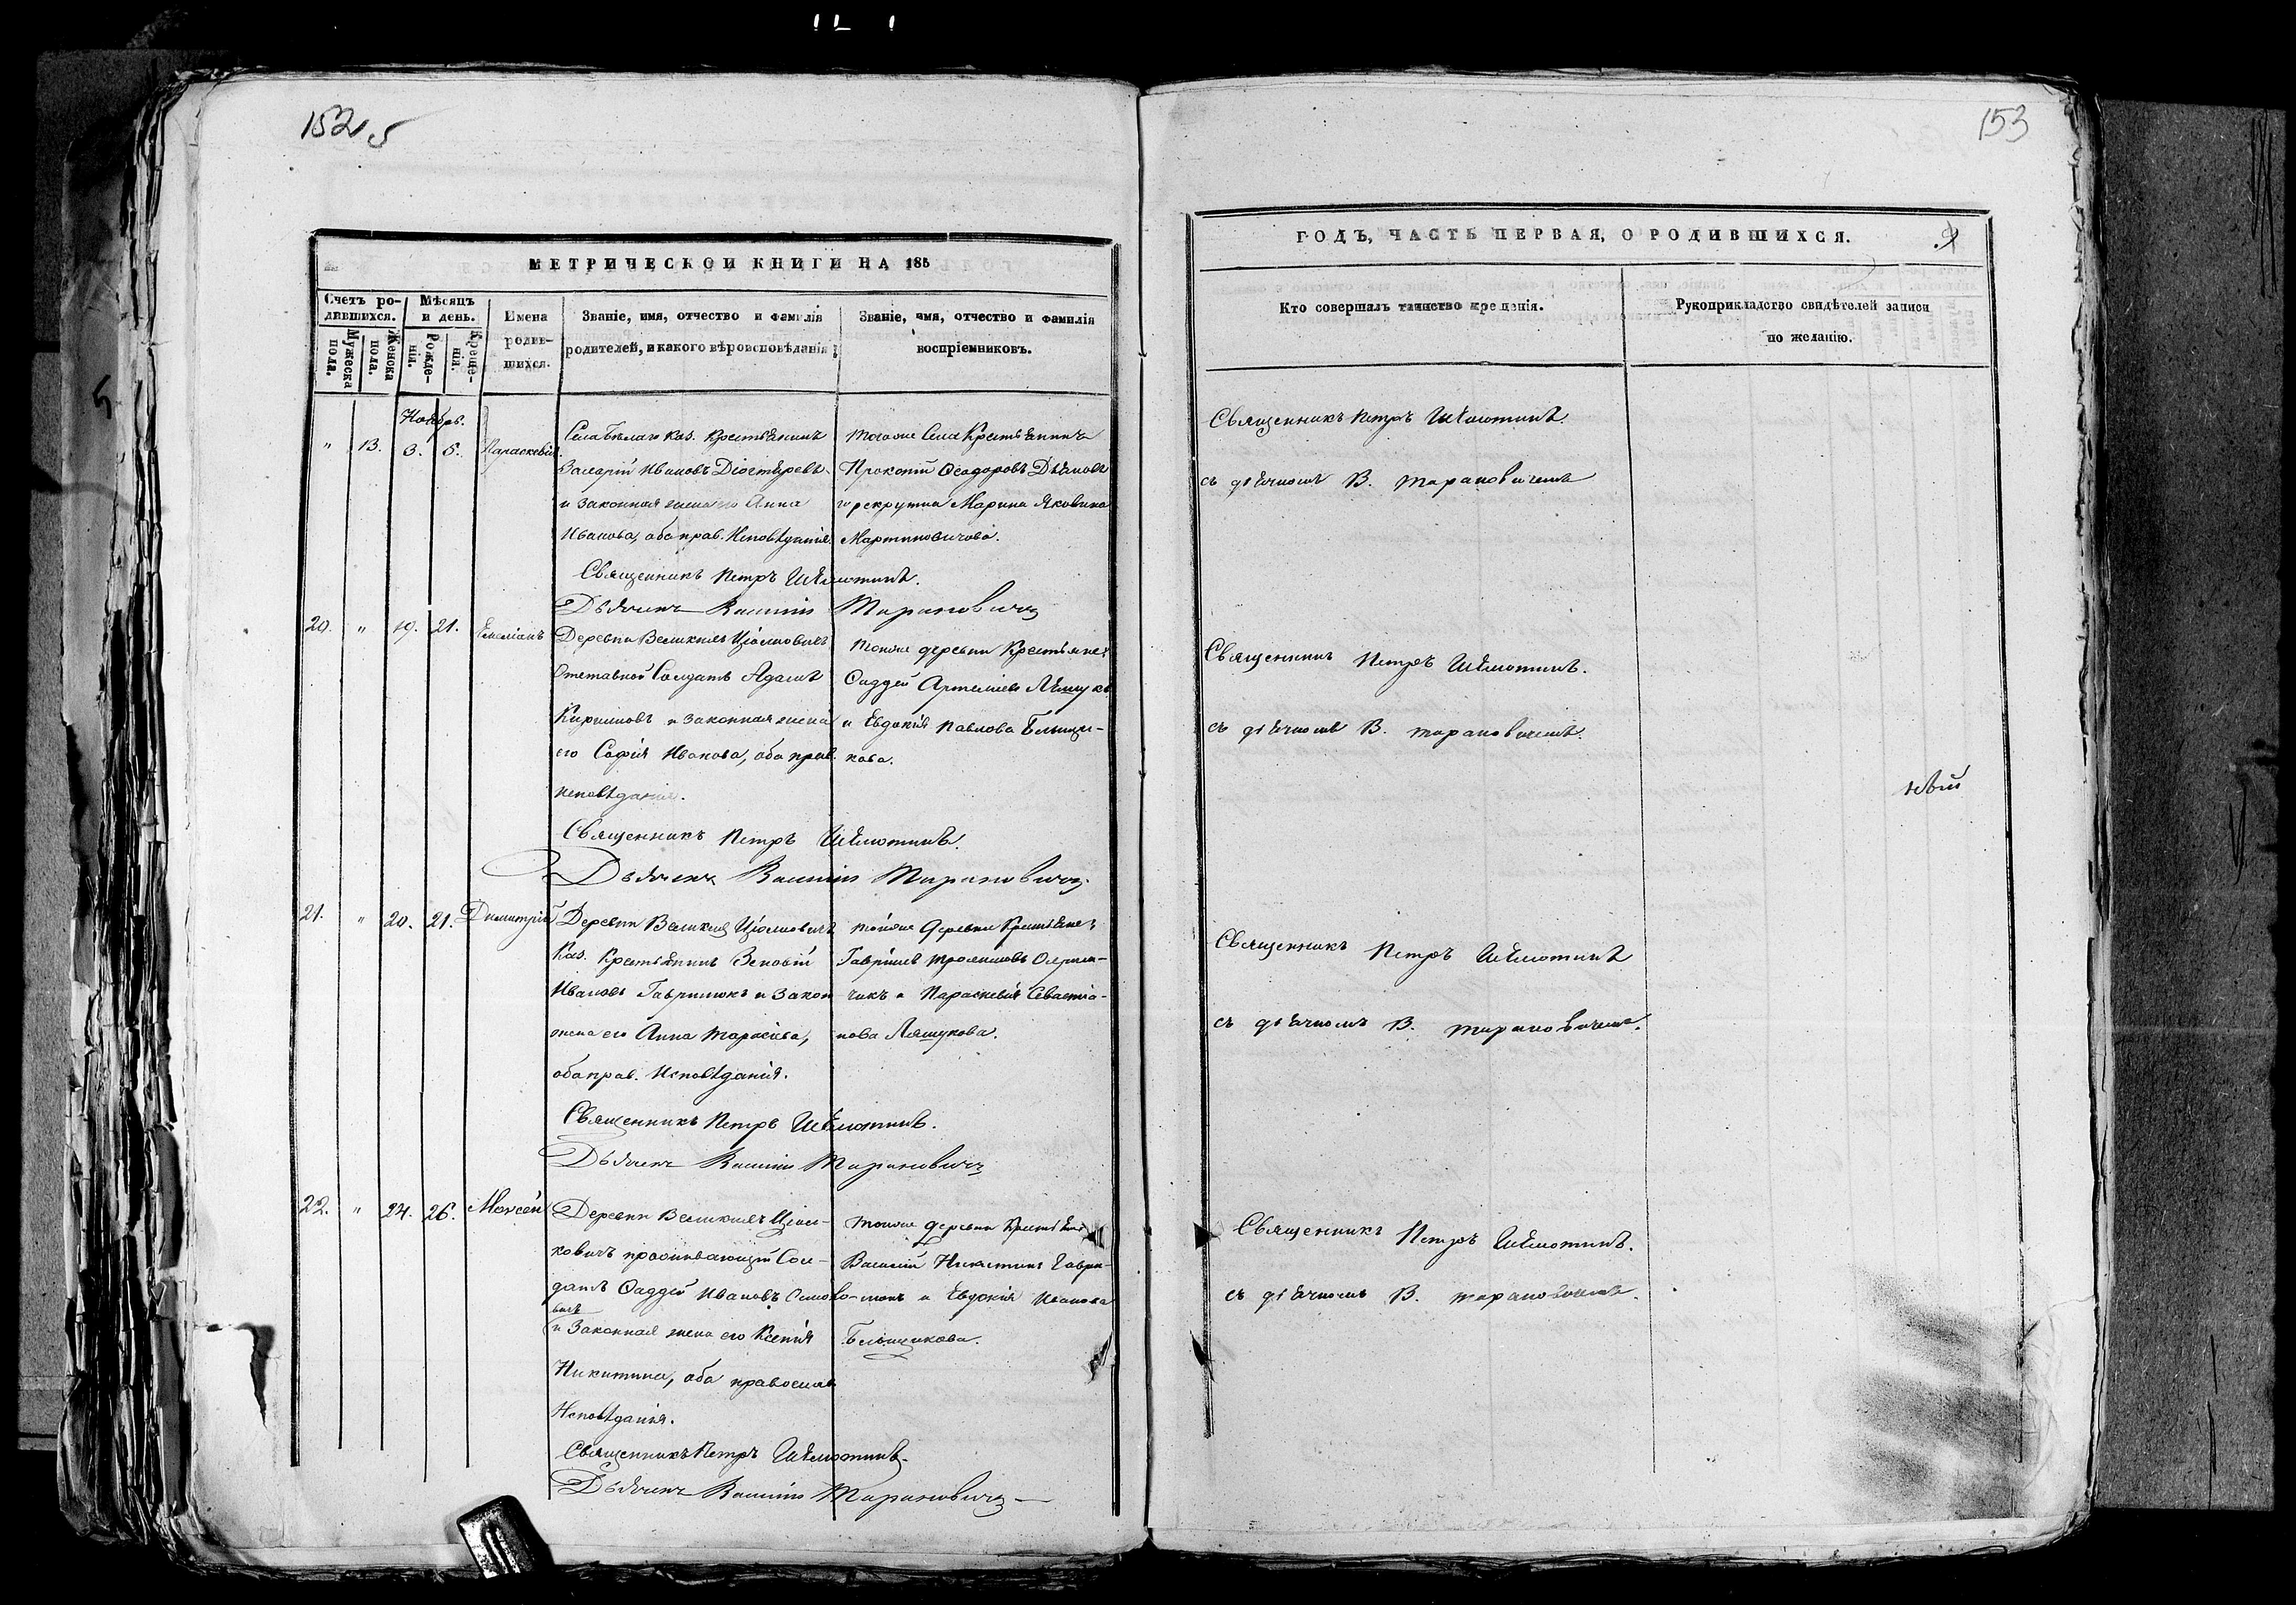 152
5
МЕТРИЧЕСКОЙ КНИГИ НА 185
Счетъ ро-
дившихся.
Мужеска пола.
Женска пола.
Мѣсяцъ
и день.
Рожде-
нія.
Креще-
нія.
Имена
родив-
шихся.
Званіе, имя, отчество и фамилія
родителей, и какого вѣроисповѣданія
Званіе, имя, отчество и фамилія
воспріемниковъ.
Ноябрь.
" 13. 3. 5. Параскевія
Села Бѣлаго Каз. Крестьянинъ
Захарій Ивановъ
и законная жена его Анна
Иванова, оба прав. Исповѣданія.
тогоже Села Крестьянинъ
Прокопій Ѳеодоровъ
рекрутка Марина Яковлева
Мартиновичова.
Священникъ Петръ Шеметилъ.
Дьячекъ Василій Тарановичъ
20. " 19. 21. Емеліанъ
Деревни Великихъ Цѣлковичъ
Отставной Солдатъ Адамъ
Кириловъ и законная жена
его Софія Иванова, оба прав.
исповѣданія.
тойже деревни Крестьяне:
Ѳаддей Артемьевъ Ляшукъ
и Евдокія Павлова Бельщи-
кова.
Священникъ Петръ Шеметилъ.
Дьячекъ Василій Тарановичъ
21. " 20. 21. Димитрій
Деревни Великихъ Цѣлковичъ
Каз. Крестьянинъ Зеновій
Ивановъ Гаврилюкъ и закон
жена его Анна Тарасіева,
оба прав. Исповѣданія.
тойже деревни Крестьяне:
Гавріилъ Трофимовъ
чикъ и Параскевія Севастіа-
нова Ляшукова.
Священникъ Петръ Шеметилъ.
Дьячекъ Василій Тарановичъ
22. " 24. 26. Моисей
Деревни Великихъ Цѣл-
ковичъ проживающій Сол-
датъ Ѳаддей Ивановъ
и законная жена его Ксенія
Никитина, оба православ
Исповѣданія.
тойже деревни Крестьяне
Василій Никитинъ Гаври-
люкъ и Евдокія Иванова
Бельщикова.
Священникъ Петръ Шеметилъ.
Дьячекъ Василій Тарановичъ
153
ГОДЪ, ЧАСТЬ ПЕРВАЯ, О РОДИВШИХСЯ.
Кто совершалъ таинство крещенія.
Рукоприкладство свидѣтелей записи
по желанію.
Священникъ Петръ Шеметилъ.
съ дьячкомъ В. Тарановичемъ
Священникъ Петръ Шеметилъ.
съ дьячкомъ В. Тарановичемъ.
Священникъ Петръ Шеметилъ
съ дьячкомъ В. Тарановичемъ.
Священникъ Петръ Шеметилъ.
съ дьячкомъ В. Тарановичемъ.